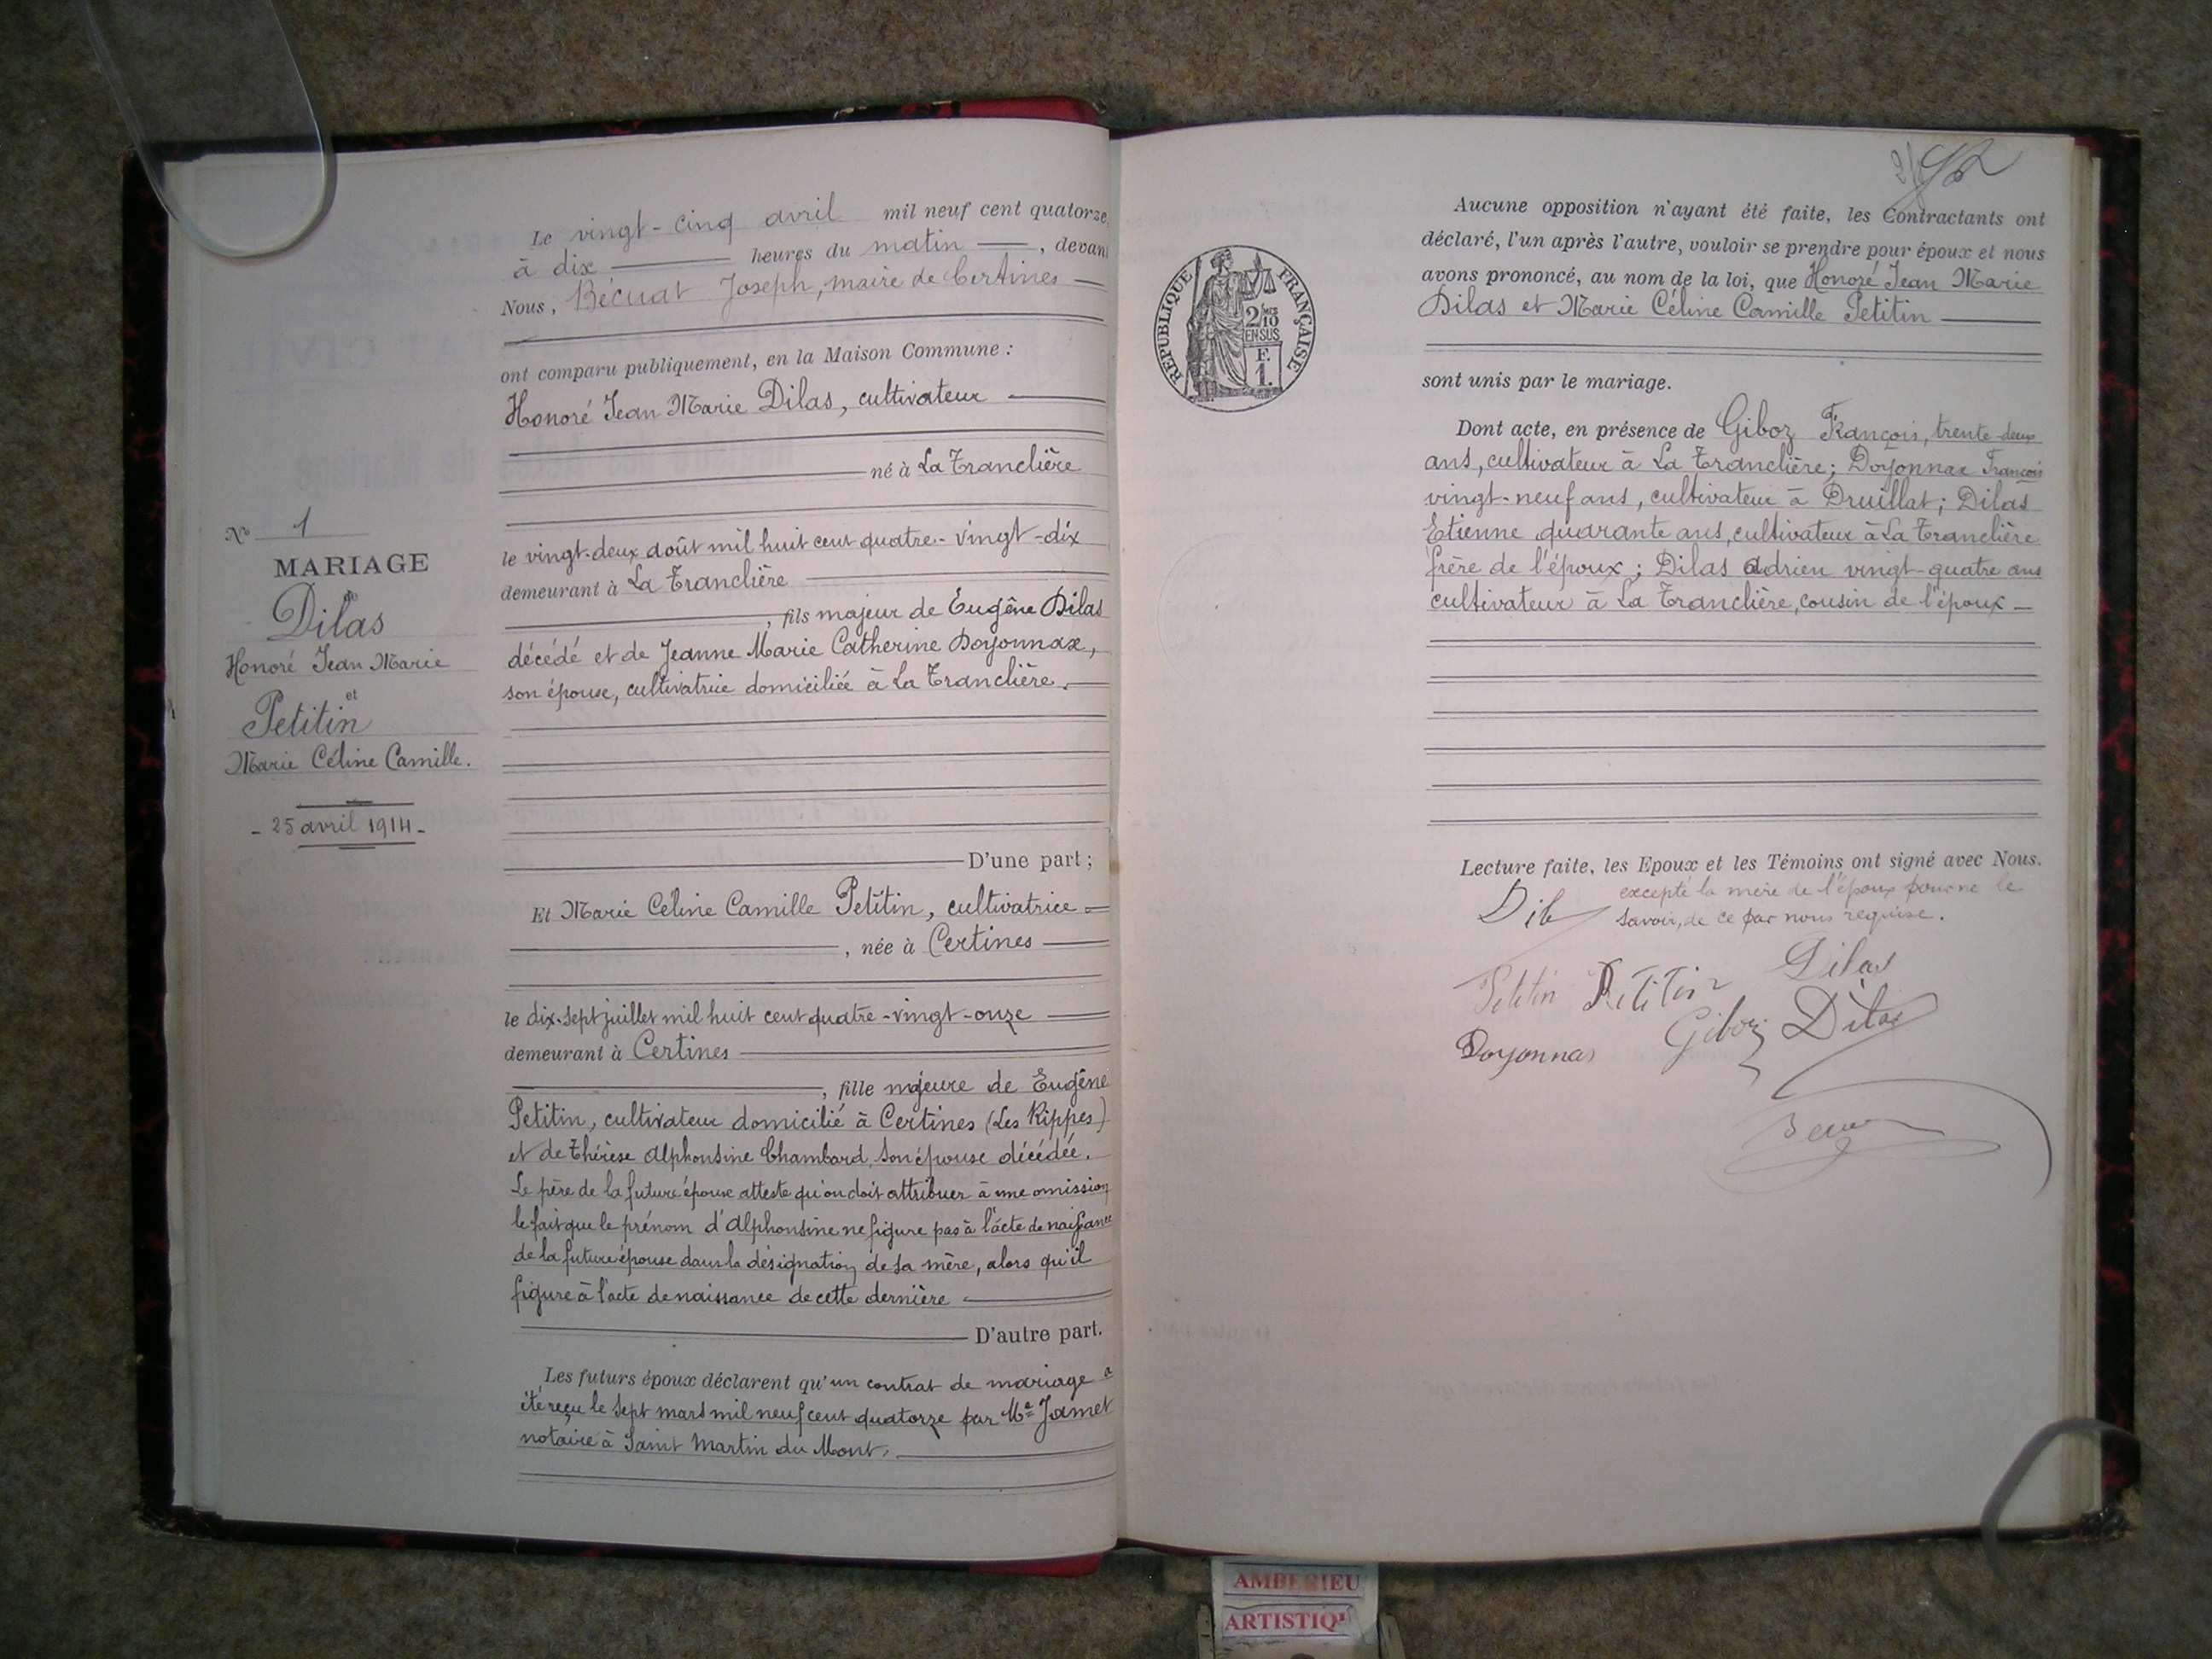 N° 1
MARIAGE
de
Dilas
Honoré Jean Marie
et
Petitin
Marie Céline Camille.
- 25 avril 1914 -
Le vingt-cinq avril mil neuf cent quatorze
à dix heures du matin, devant
Nous, Bécuat Joseph, maire de Certines
ont comparu publiquement, en la Maison Commune :
Honoré Jean Marie Dilas, cultivateur
né à La Tranclière
le vingt-deux août mil huit cent quatre-vingt-dix
demeurant à La Tranclière
, fils majeur de Eugène Dilas
décédé et de Jeanne Marie Catherine Doyonnax,
son épouse, cultivatrice domiciliée à La Tranclière.
D'une part ;
Et Marie Céline Camille Petitin, cultivatrice
, née à Certines
le dix-sept juillet mil huit cent quatre-vingt-onze
demeurant à Certines
, fille majeure de Eugène
Petitin, cultivateur domicilié à Certines (Les Rippes)
et de Thérèse Alphonsine Chambard, son épouse décédée.
Le père de la future épouse atteste qu'on doit attribuer à une omission
le fait que le prénom d'Alphonsine ne figure pas à l'acte de naissance
de la future épouse dans la désignation de sa mère, alors qu'il
figure à l'acte de naissance de cette dernière
D'autre part.
Les futurs époux déclarent qu'un contrat de mariage a
été reçu le sept mars mil neuf cent quatorze par Me Jamet
notaire à Saint Martin du Mont,
REPUBLIQUE FRANÇAISE
2/10
EN SUS
F.
1.
Aucune opposition n'ayant été faite, les Contractants ont
déclaré, l'un après l'autre, vouloir se prendre pour époux et nous
avons prononcé, au nom de la loi, que Honoré Jean Marie
Dilas et Marie Céline Camille Petitin
sont unis par le mariage.
Dont acte, en présence de Giboz François, trente-deux
ans, cultivateur à La Tranclière ; Doyonnax François
vingt-neuf ans, cultivateur à Druillat ; Dilas
Etienne quarante ans, cultivateur à La Tranclière
frère de l'époux ; Dilas Adrien vingt-quatre ans
cultivateur à La Tranclière, cousin de l'époux
Lecture faite, les Epoux et les Témoins ont signé avec Nous.
excepté la mère de l'époux pour ne le
savoir, de ce par nous requise.
Petitin Petitin Dilas
Doyonnax Giboz Dilas
AMBERIEU
ARTISTIQU